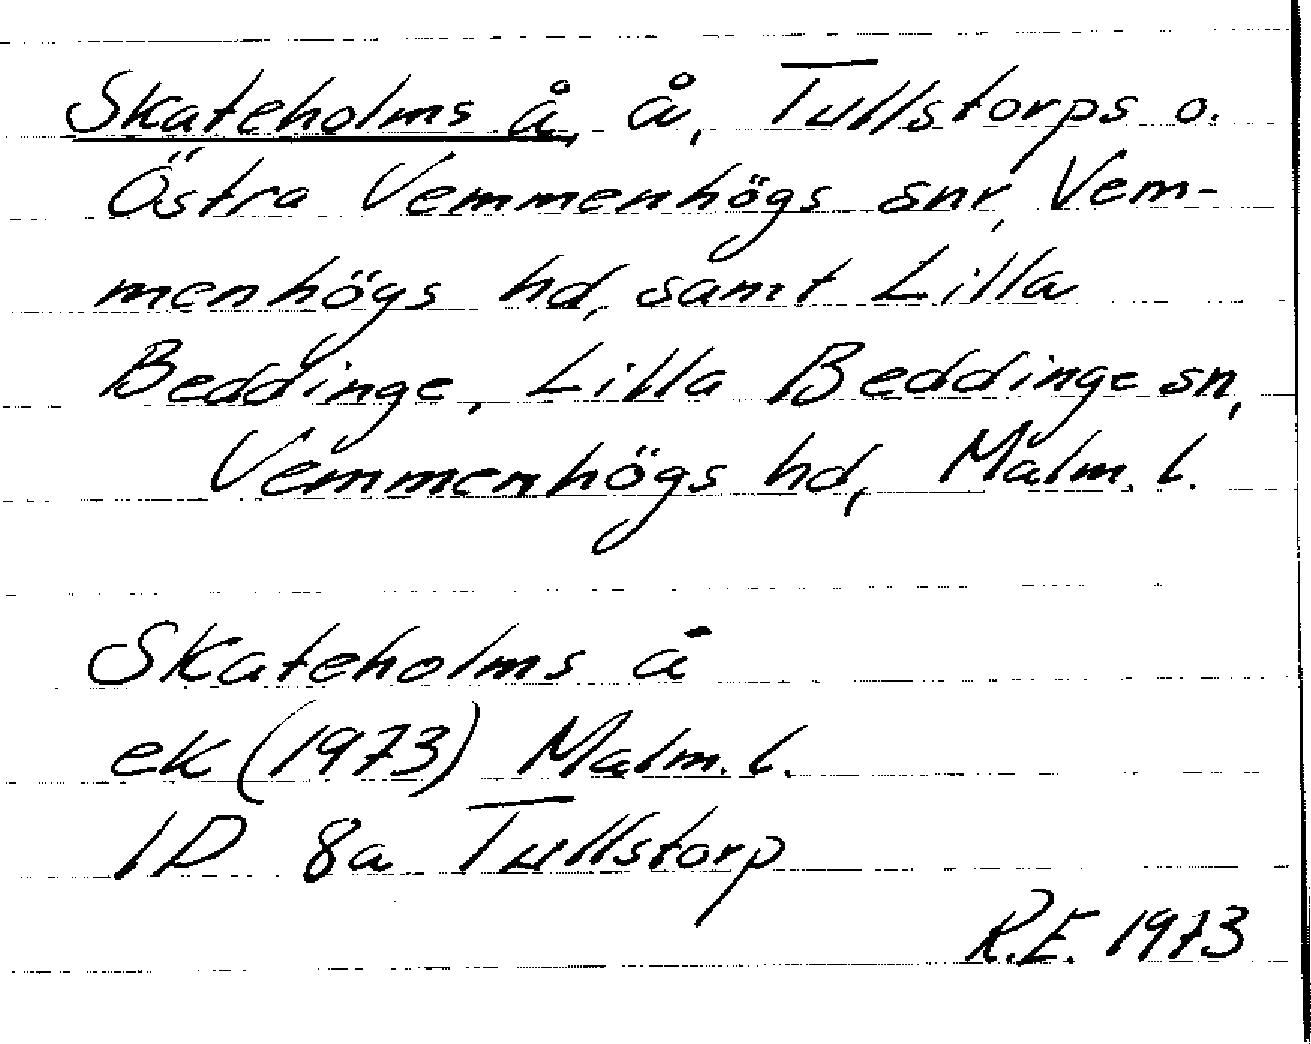 Skateholms å, å, Tullstorps o.
Östra Vemmenhögs snr, Vem-
menhögs hd, samt Lilla
Beddinge, Lilla Beddinge sn,
Vemmenhögs hd, Malm. l.
Skateholms å
ek (1973) Malm. l.
1D 8a Tullstorp
R.E. 1973